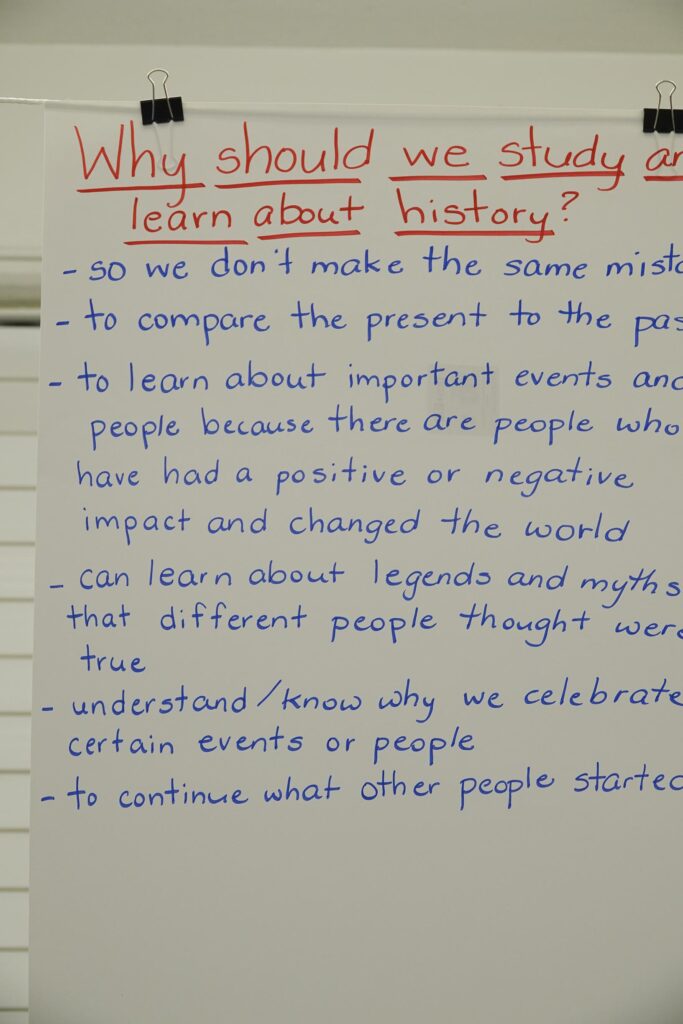 Why should we study an
learn about history?
- so we don't make the same mista
- to compare the present to the pas
- to learn about important events and
people because there are people who
have had a positive or negative
impact and changed the world
- can learn about legends and myths
that different people thought were
true
- understand/know why we celebrate
certain events or people
- to continue what other people started